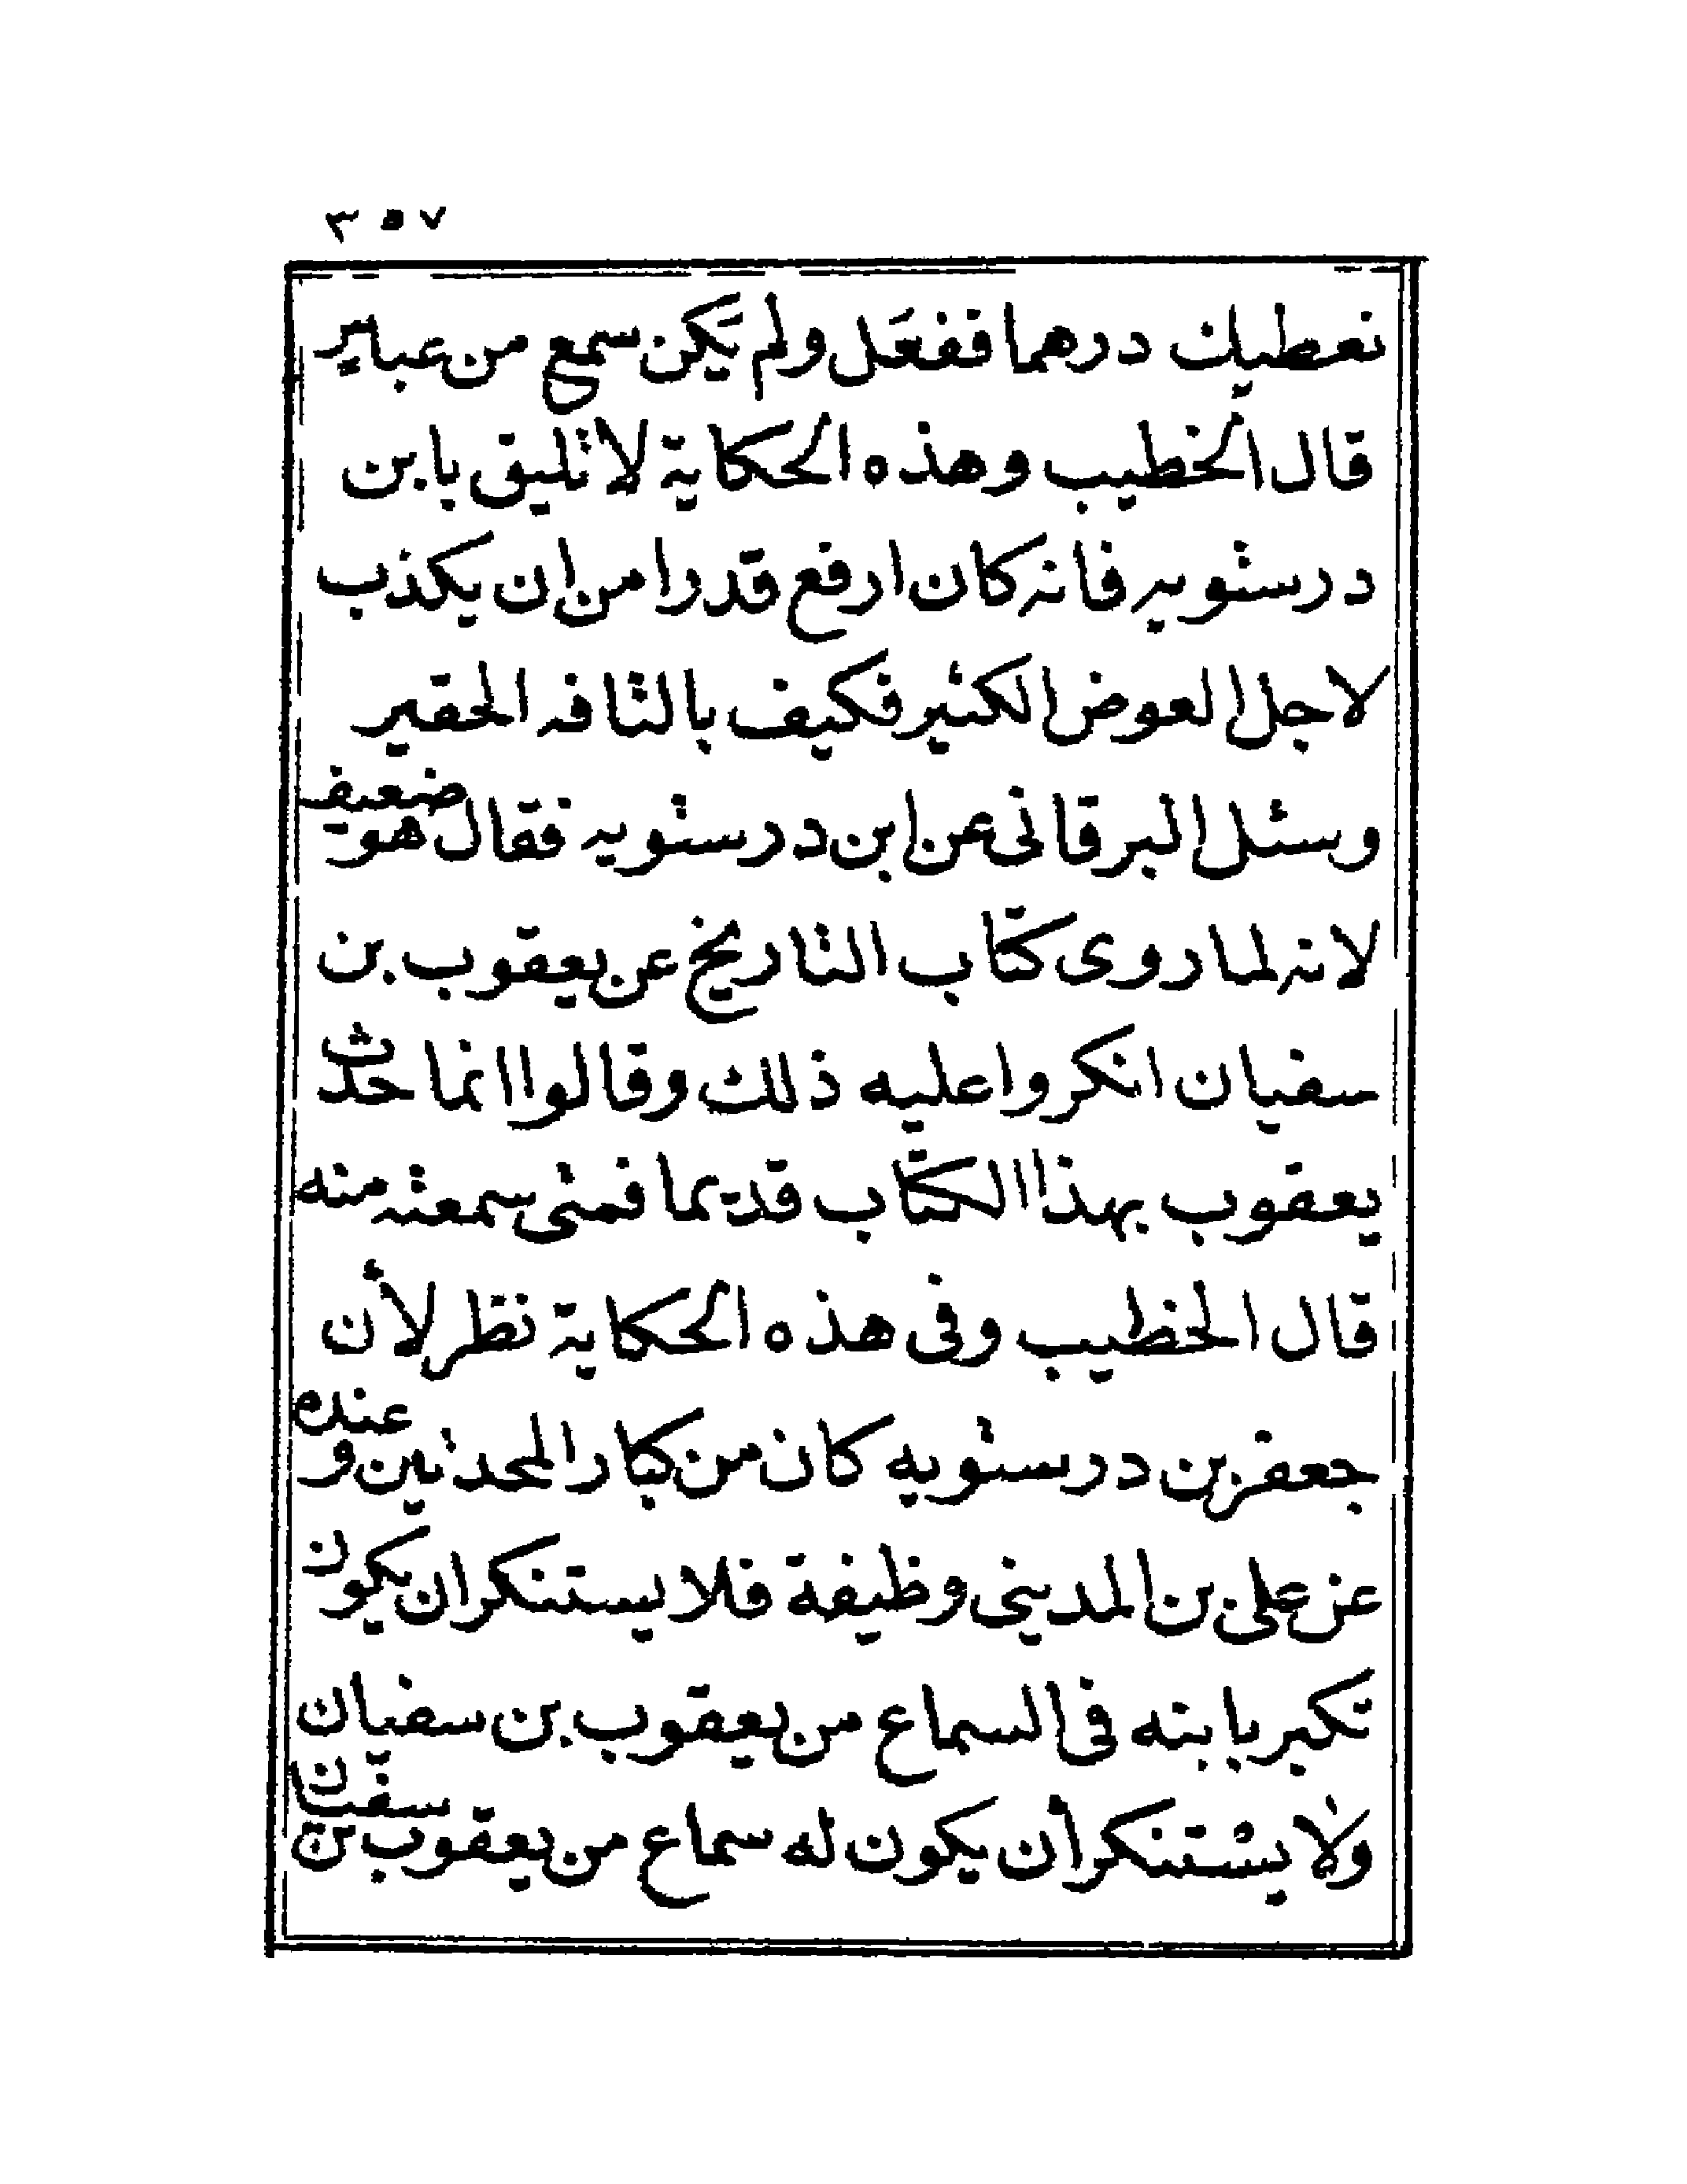 ٣٥٧
نعطيك درهما ففعَل ولم يَكن سمع من عباير
قال الخطيب وهذه الحكاية لا تليق بابن
درستويه فانه كان ارفع قدرا من ان يكذب
لاجل العوض الكثير فكيف بالتافه الحقير
وسئل البرقانى عن ابن درستويه فقال هو ضعيف
لانه لما روى كتاب التاريخ عن يعقوب بن
سفيان انكروا عليه ذلك وقالوا انما حدث
يعقوب بهذا الكتاب قديما فمتى سمعته منه
قال الخطيب وفى هذه الحكاية نظر لأن
جعفر بن درستويه كان من كبار المحدثين و عنده
عن على بن المدينى وظيفة فلا يستنكر ان يكون
تكبر بابنه فى السماع من يعقوب بن سفيان
ولا يستنكر أن يكون له سماع من يعقوب بن سفين